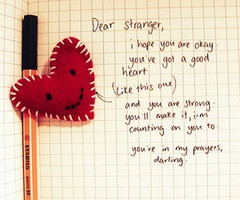 Dear stranger,
i hope you are okay
you've got a good
heart
(like this one)
and you are strong.
you'll make it, i'm
counting on you to
you're in my prayers,
darling.
STABILO